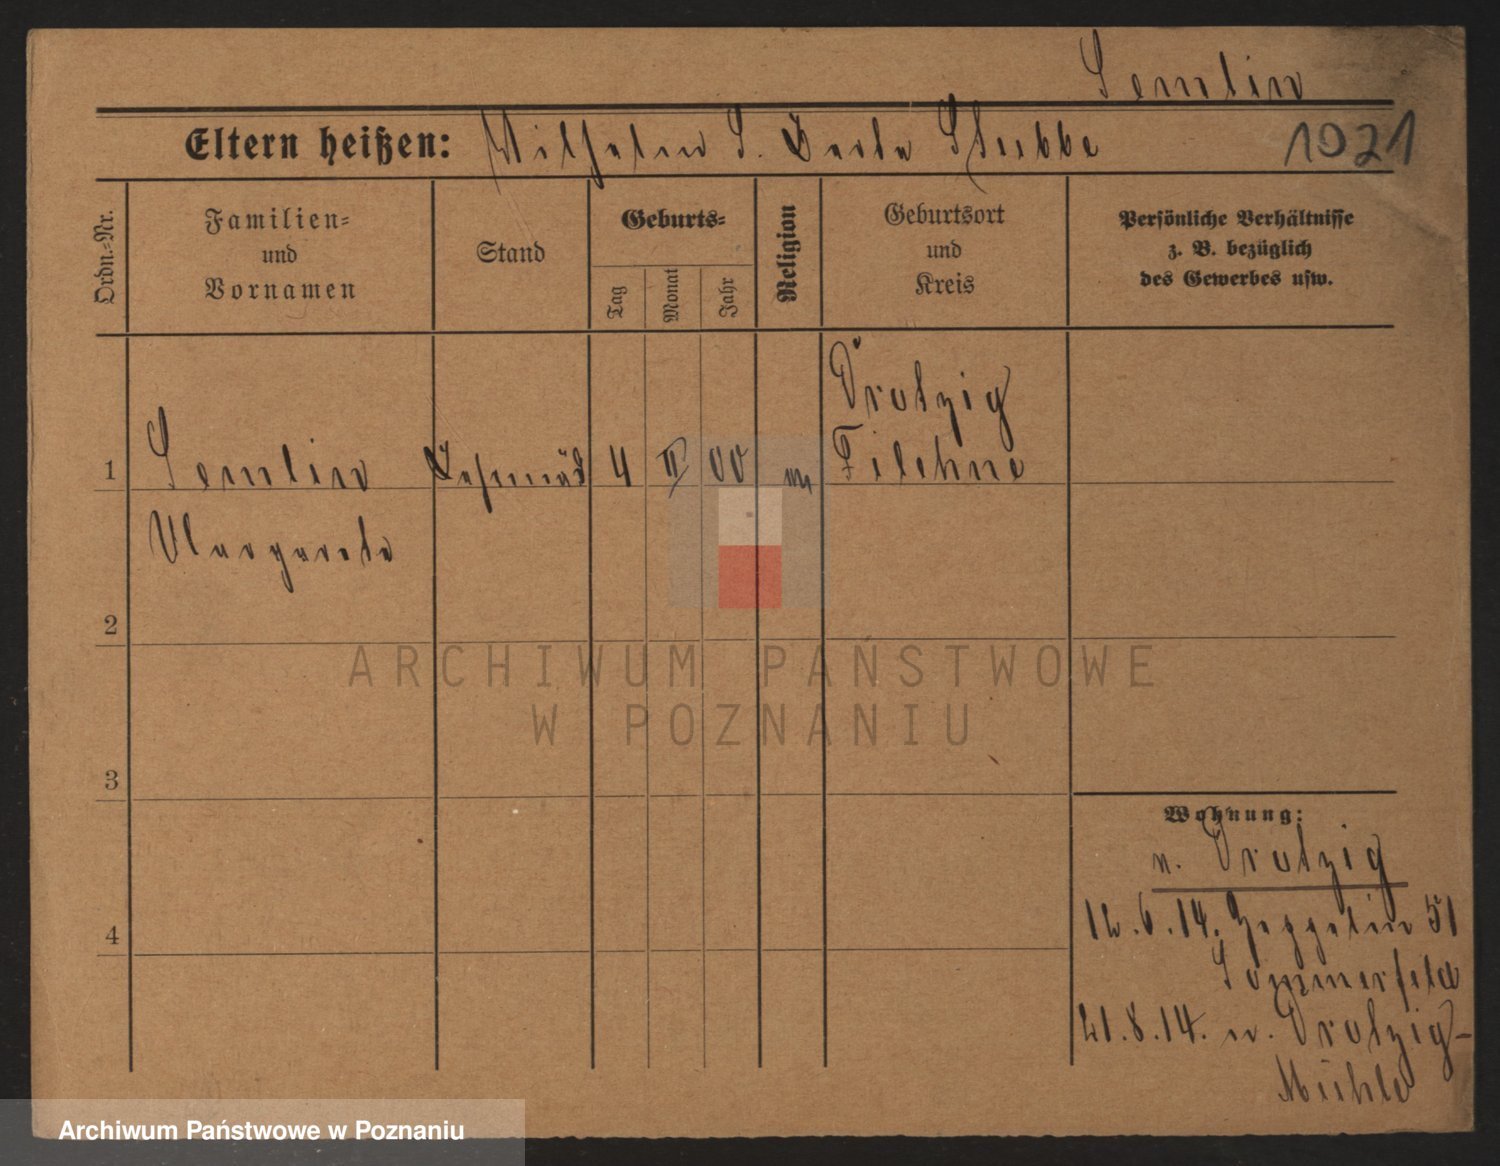 Semlin
Eltern heißen: Wilhelm S. Berta Stubbe
1921
Ordn.-Nr.
Familien-
und
Vornamen
Stand
Geburts-
Tag
Monat
Jahr
Religion
Geburtsort
und
Kreis
Persönliche Verhältnisse
z. B. bezüglich
des Gewerbes usw.
Dratzig
1 Semlin 4 II 00 Filehne
Margarete
2
ARCHIWUM PAŃSTWOWE
W POZNANIU
3
Wohnung:
n. Dratzig
4
12.6.14. Zeppelin 51
Sommerfeld
21.8.14. n. Dratzig-
Mühle
Archiwum Państwowe w Poznaniu